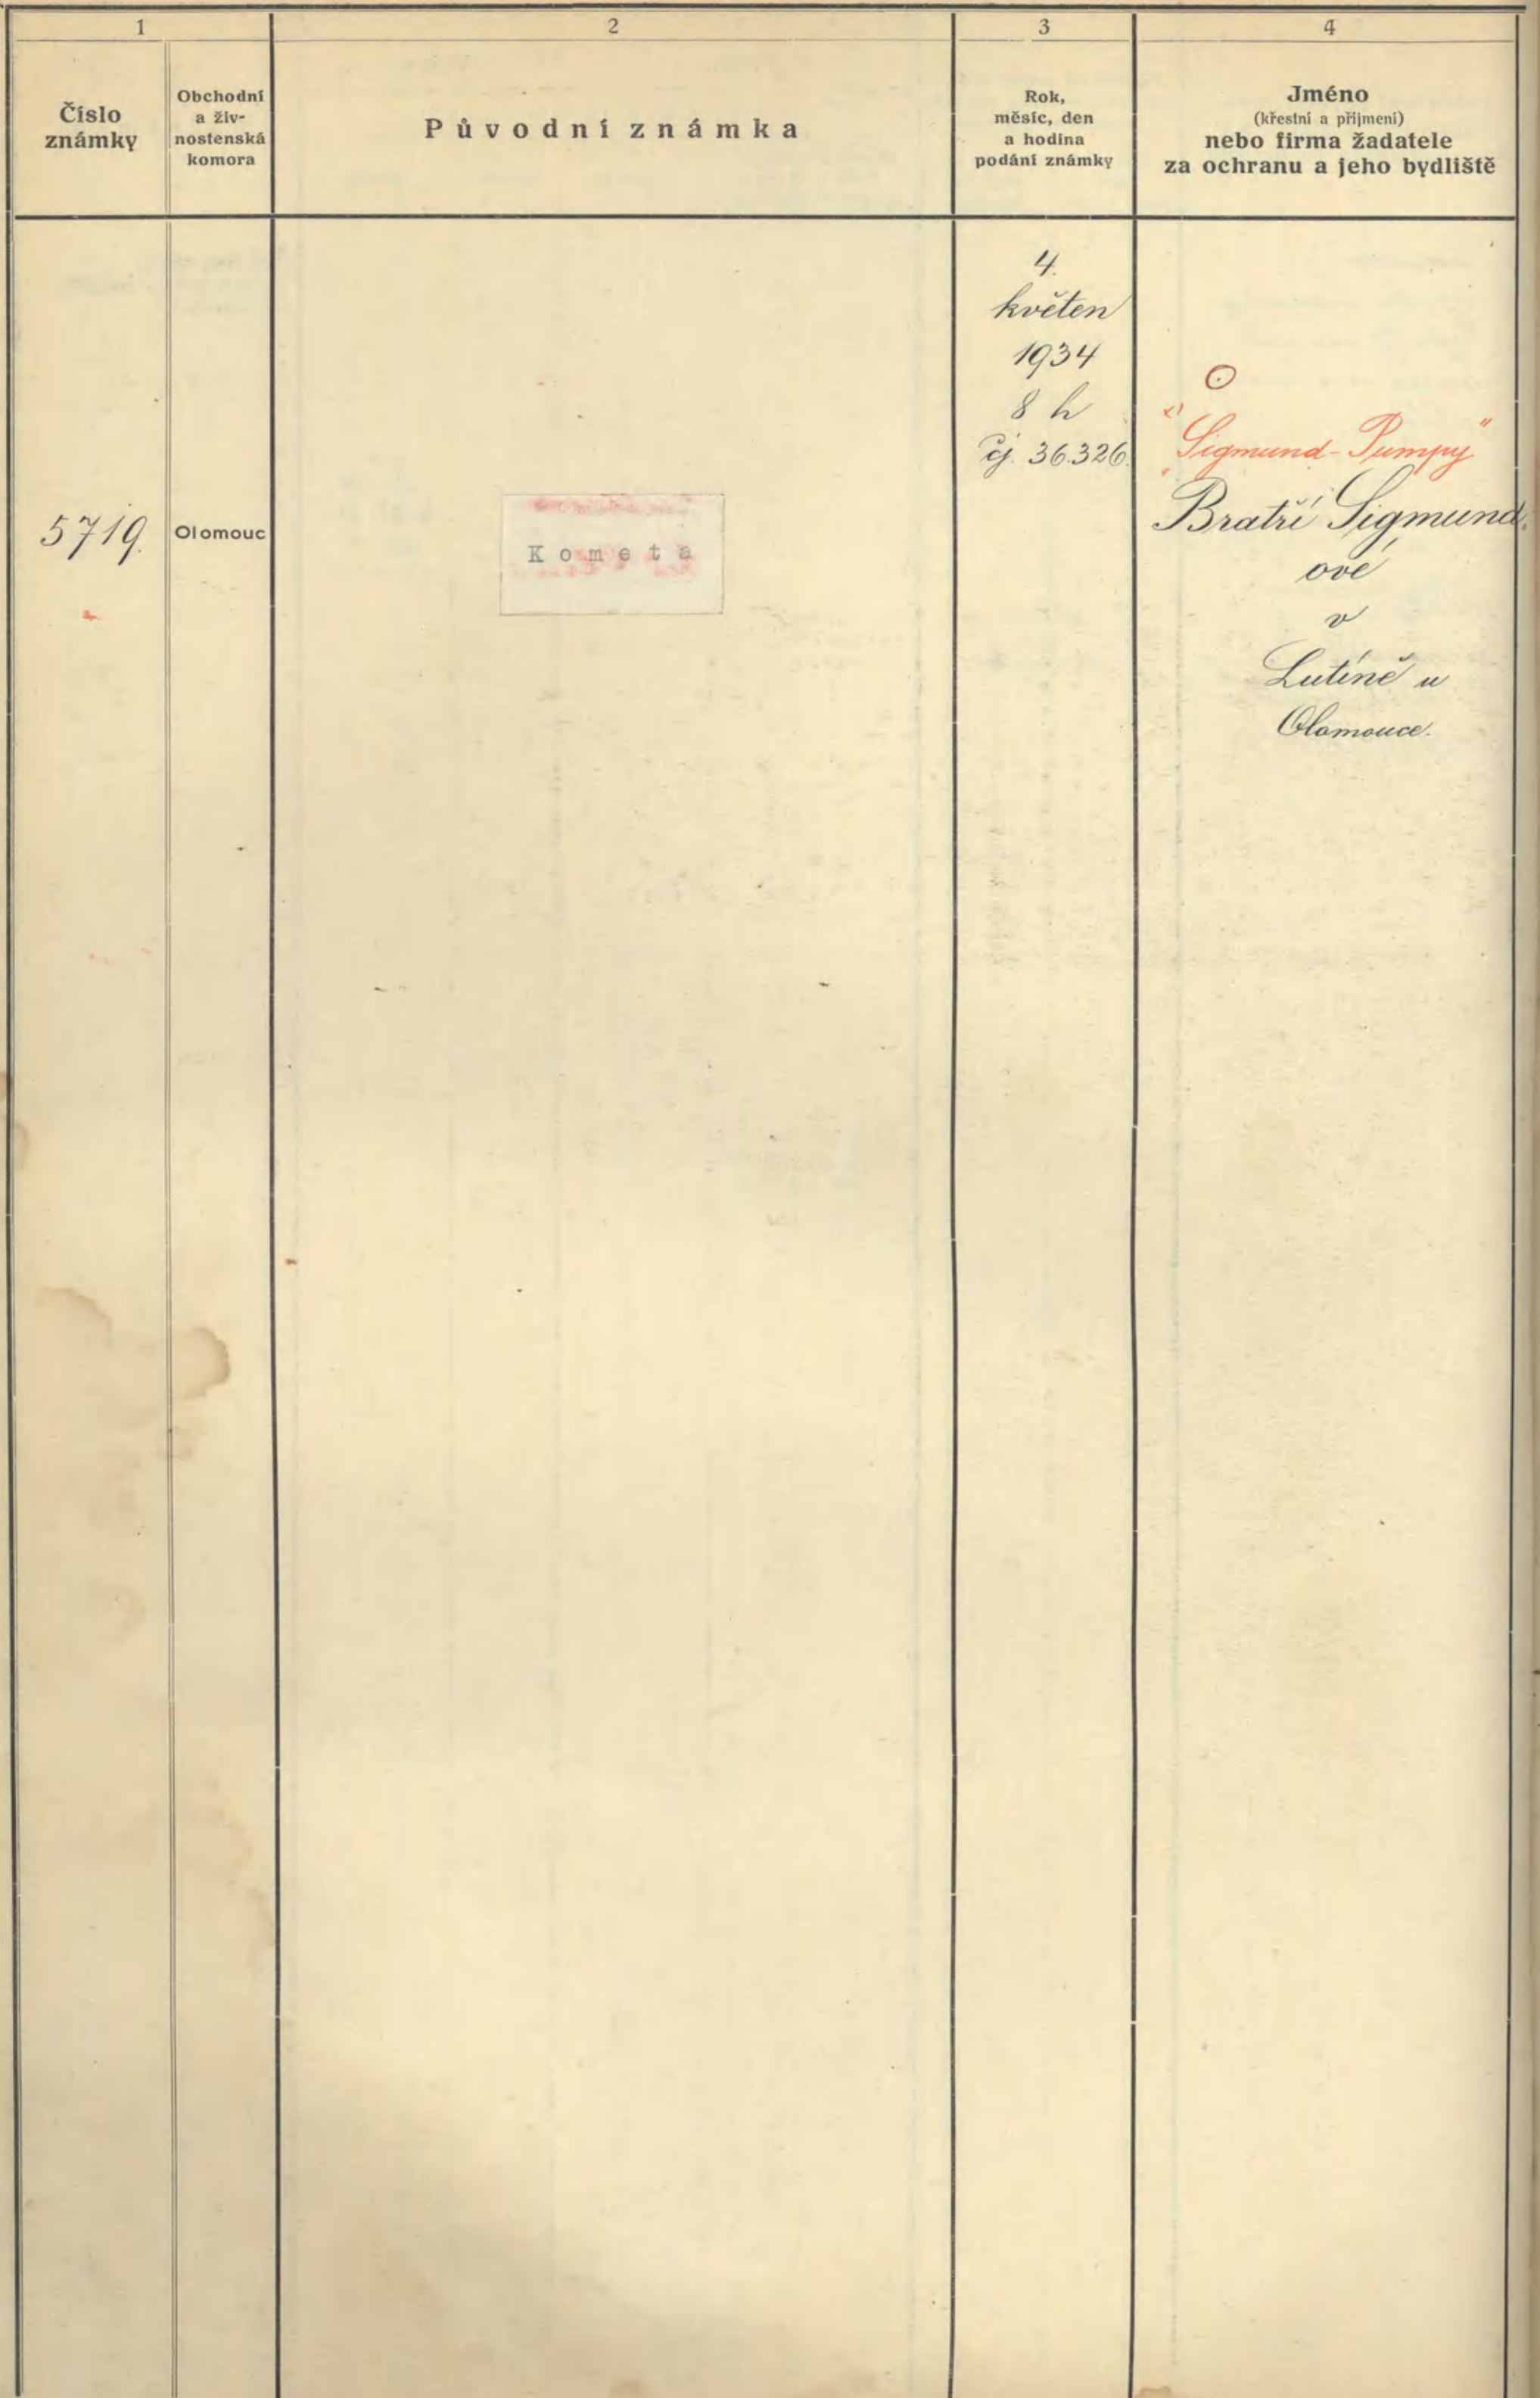 1
2
3
4
Číslo
známky
Obchodní
a živ-
nostenská
komora
Původní známka
Rok,
měsíc, den
a hodina
podání známky
Jméno
(křestní a příjmení)
nebo firma žadatele
za ochranu a jeho bydliště
5719.
Olomouc
Kometa
4.
květen
1934
8 h
čj. 36.326.
"Sigmund-Pumpy"
Bratří Sigmund
ové
v
Lutíně u
Olomouce.